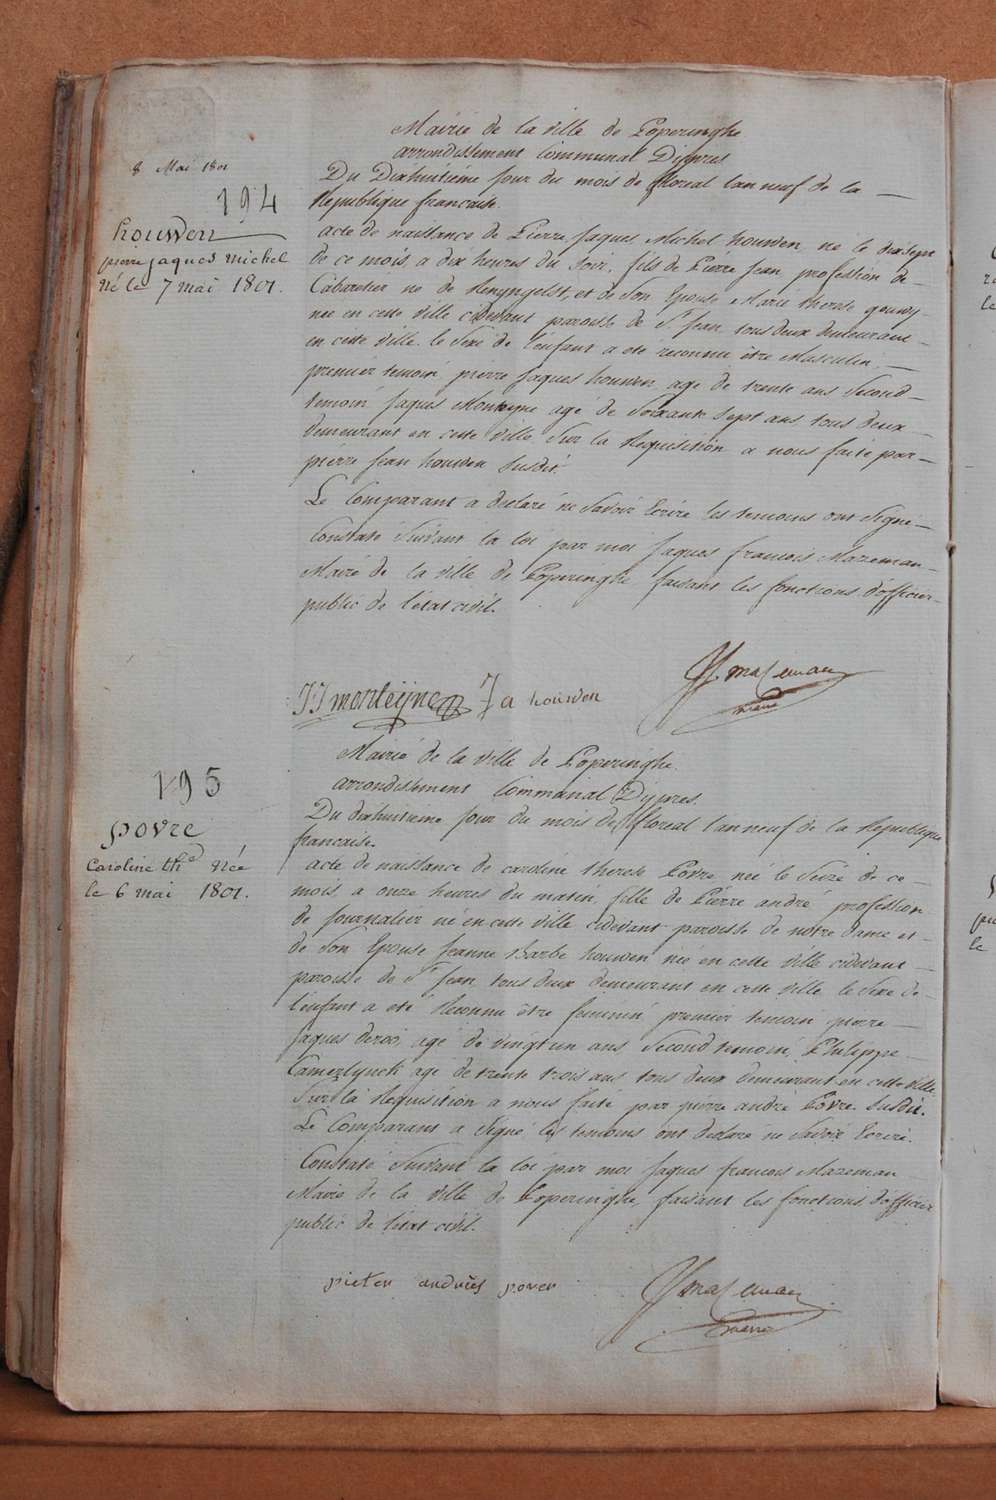 8 Mai 1801
194
houwen
pierre jaques michel
né le 7 mai 1801.
Mairie de la ville de Poperinghe
arrondissement Communal Dypres
Du Dixhuitieme jour du mois de floreal lan neuf de la —
Republique francaise.
acte de naissance de Pierre Jaques Michel houwen né le dixsept
de ce mois a dix heures du soir, fils de Pierre Jean profession de
Cabaretier né de Renyngelst, et de son Epouse Marie therese
née en cette ville cidevant paroisse de St Jean tous deux demeurant
en cette ville le sexe de lenfant a eté reconnu être Masculin, —
premier temoin pierre Jaques houwen agé de trente ans Second —
temoin Jaques Monteyne agé de Soixante Sept ans, tous deux —
demeurant en cette ville Sur la Requisition a nous faite par —
pierre Jean houwen Susdit.
Le Comparant a declaré ne Savoir Ecrire les temoins ont Signé —
Constaté Suivant la loi par moi Jaques francois Mazeman —
Maire de la ville de Poperinghe faisant les fonctions d'officier —
public de l'état civil.
JJ monteijne J a houwen JF mazeman
maire
195
povre
Caroline thé Née
le 6 mai 1801.
Mairie de la ville de Poperinghe
arrondissement Communal Dypres.
Du dixhuitieme jour du mois de floreal lan neuf de la Republique
francaise.
acte de naissance de caroline therese Povre née le Seize de ce —
mois, a onze heures du matin, fille de Pierre andré profession
de journalier né en cette ville cidevant paroisse de notre dame et —
de Son Epouse Jeanne Barbe houwen née en cette ville cidevant —
paroisse de St Jean, tous deux demeurant en cette ville le Sexe de —
l'enfant a eté Reconnu être feminin premier temoin pierre —
Jaques deroo, agé de vingt un ans Second temoin, Philippe —
Camerlynck agé de trente trois ans tous deux demeurant en cette ville
Sur la Requisition a nous faite par pierre andré Povre Susdit.
Le Comparant a Signé les temoins ont declaré ne Savoir Ecrire.
Constaté Suivant la loi par moi Jaques francois Mazeman
Maire de la ville de Poperinghe, faisant les fonctions d'officier
public de l'état civil.
pieter andries pover JF mazeman
maire